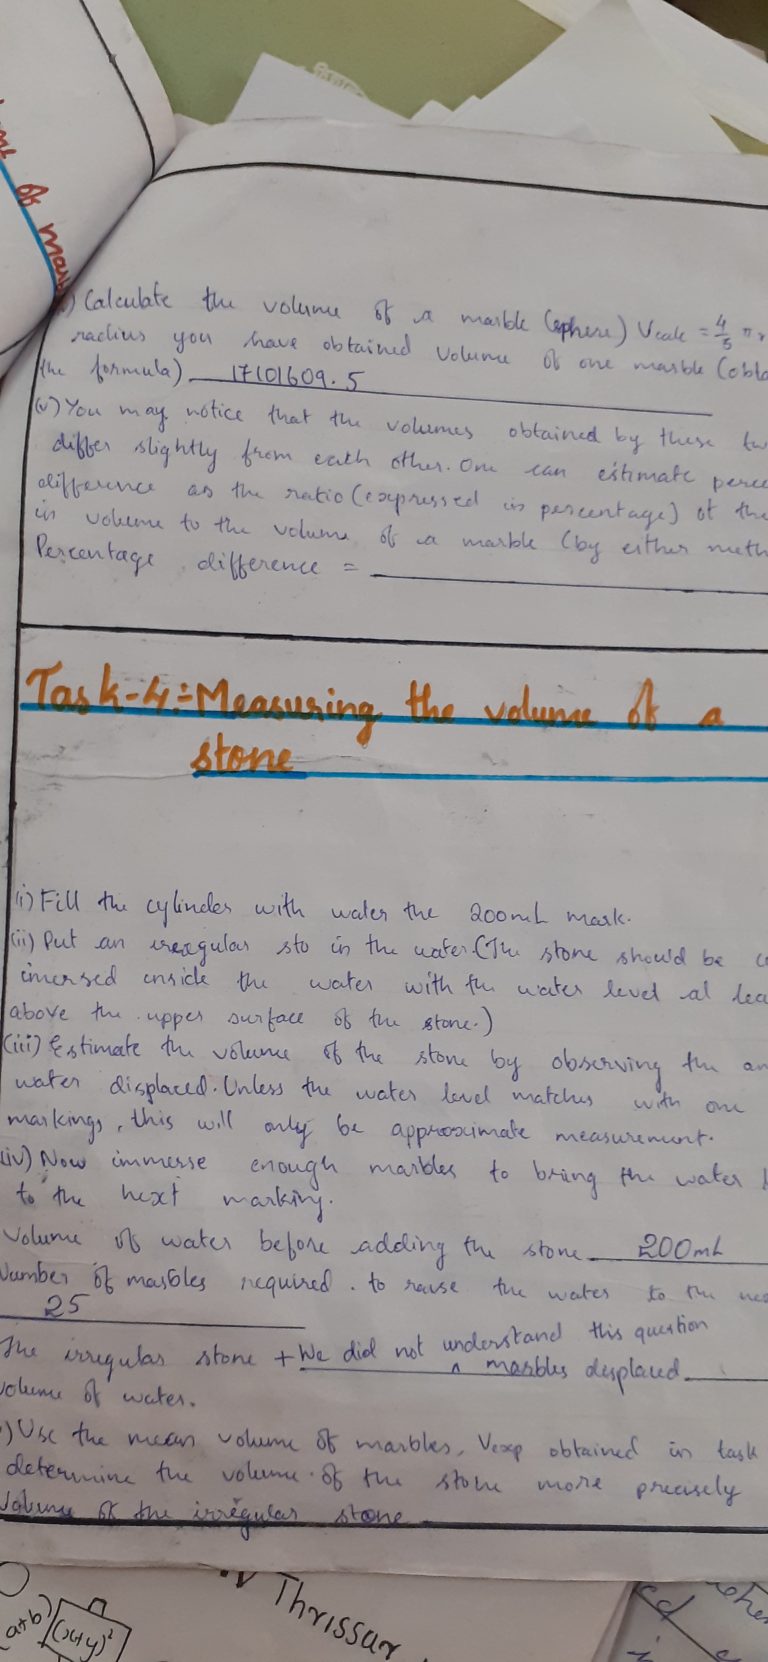 of mar
Calculate the volume of a marble (sphere) Vcalc = 4/3 π
radius you have obtained volume of one marble (obta
the formula) 17101609.5
(v) You may notice that the volumes obtained by these tw
differ slightly from each other. One can estimate perce
difference as the ratio (expressed in percentage) of the
in volume to the volume of a marble (by either meth
Percentage difference =
Task-4:-Measuring the volume of a
stone
(i) Fill the cylinder with water the 200mL mark.
(ii) Put an irregular sto in the water (The stone should be
imersed inside the water with the water level at lea
above the upper surface of the stone.)
(iii) Estimate the volume of the stone by observing the am
water displaced. Unless the water level matches with one
markings, this will only be approximate measurement.
(iv) Now immerse enough marbles to bring the water
to the next marking.
Volume of water before adding the stone 200mL
Number of marbles required. to raise the water to the nex
25
The irregular stone + We did not understand this question
^ marbles displaced
volume of water.
) Use the mean volume of marbles, Vexp obtained in task
determine the volume of the stone more precisely
Volume of the irregular stone
Thrissur
(a+b)
(x+y)²